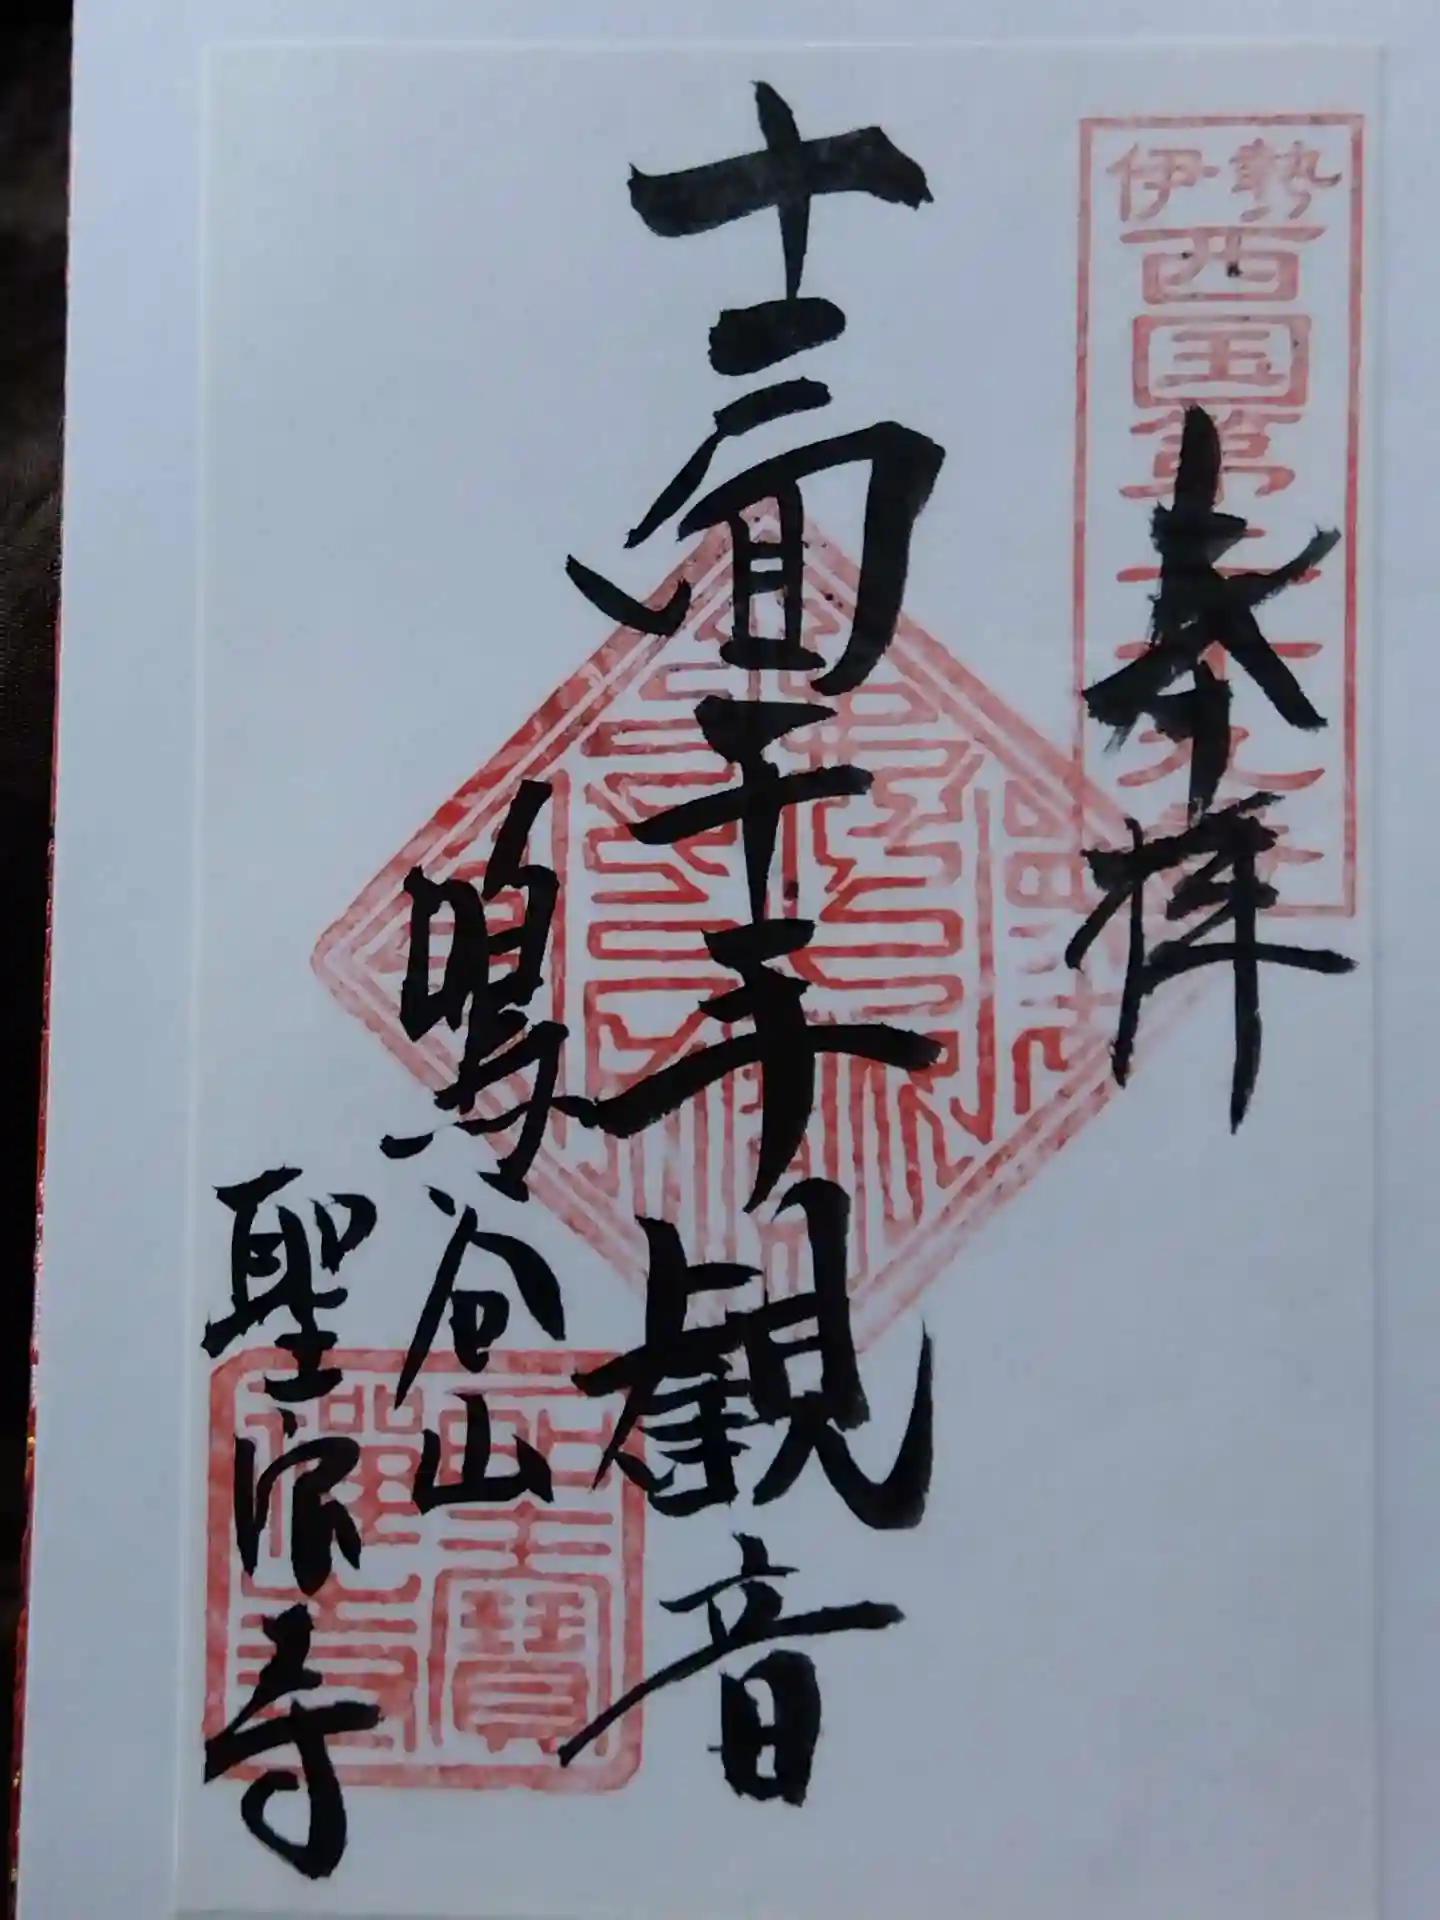 伊勢
西国第二十九番
奉拝
十一面千手観音
鳴谷山
聖宝寺
聖寶
禪寺